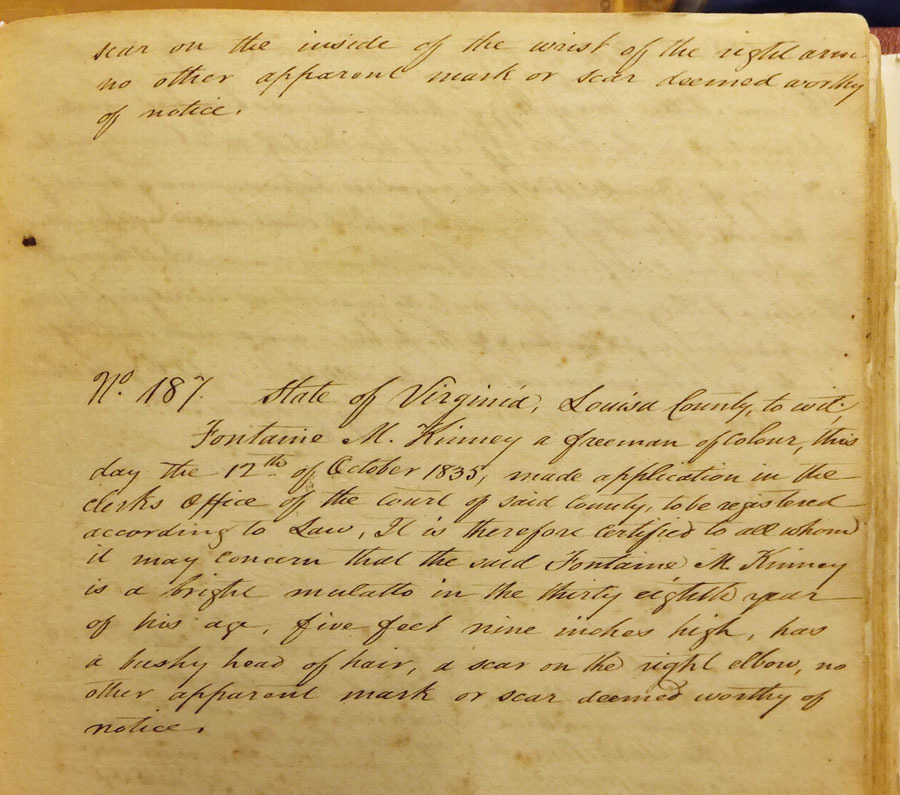 scar on the inside of the wrist of the right arm
no other apparent mark or scar deemed worthy
of notice.
No. 187. State of Virginia, Louisa County, to wit;
Fontaine M. Kinney a freeman of Colour, this
day the 12th of October 1835, made application in the
clerks Office of the court of said County, to be registered
according to Law, It is therefore certified to all whom
it may concern that the said Fontaine M. Kinney
is a bright mulatto in the thirty eighth year
of his age, five feet nine inches high, has
a bushy head of hair, a scar on the right elbow, no
other apparent mark or scar deemed worthy of
notice.